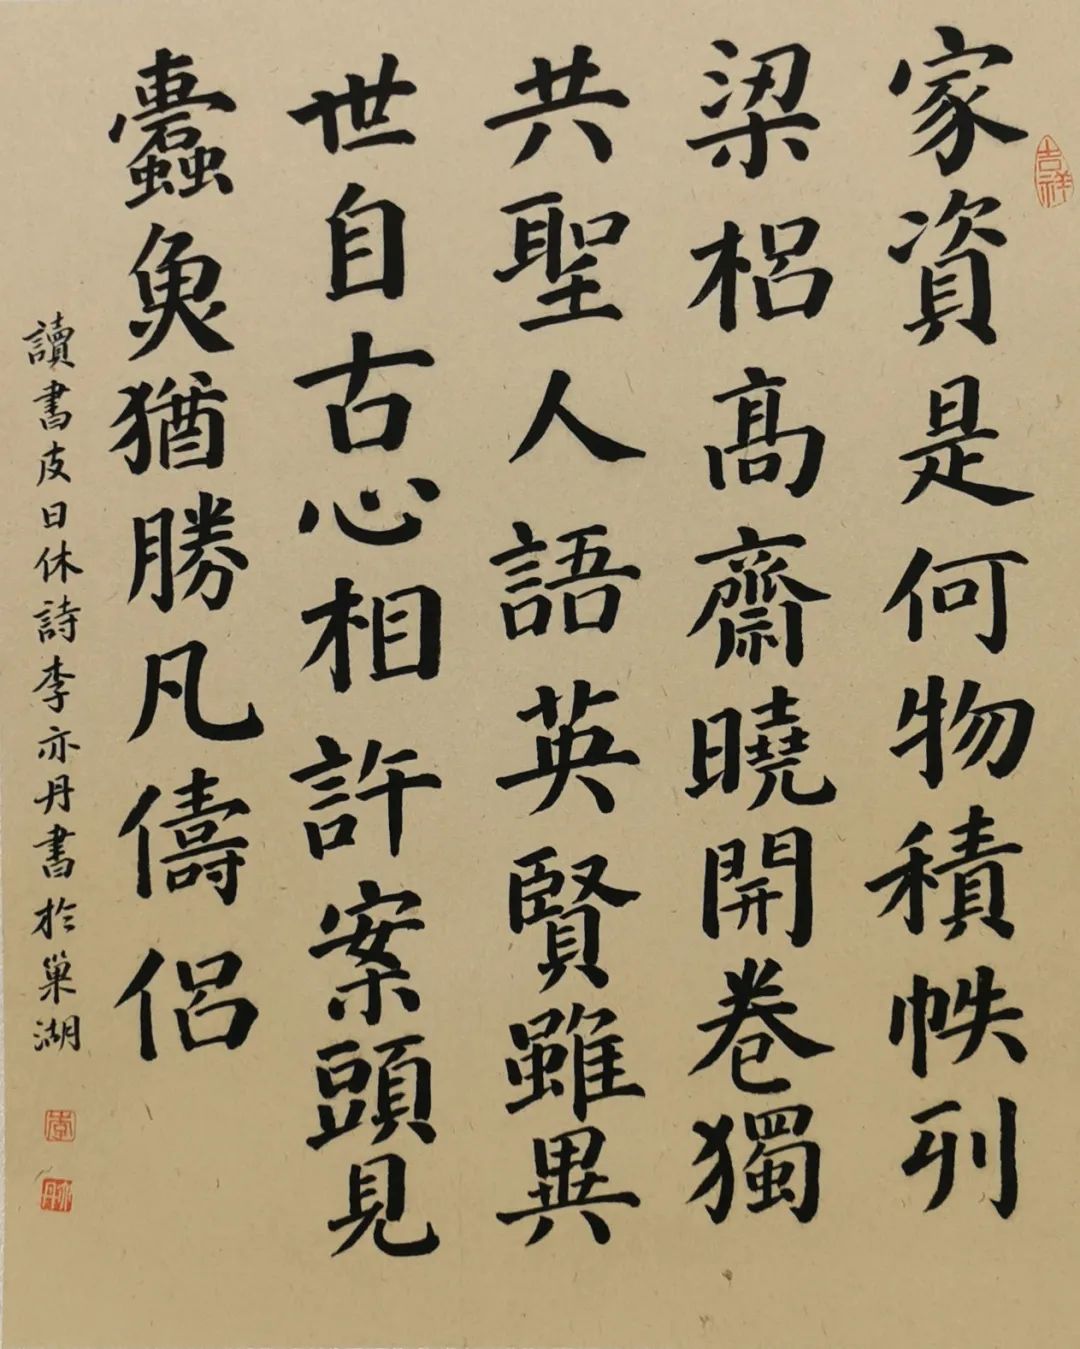 家資是何物積帙列
梁梠高齋曉開卷獨
共聖人語英賢雖異
世自古心相許案頭見
蠹魚猶勝凡儔侶
讀書皮日休詩李亦丹書於巢湖
吉祥
李
亦丹